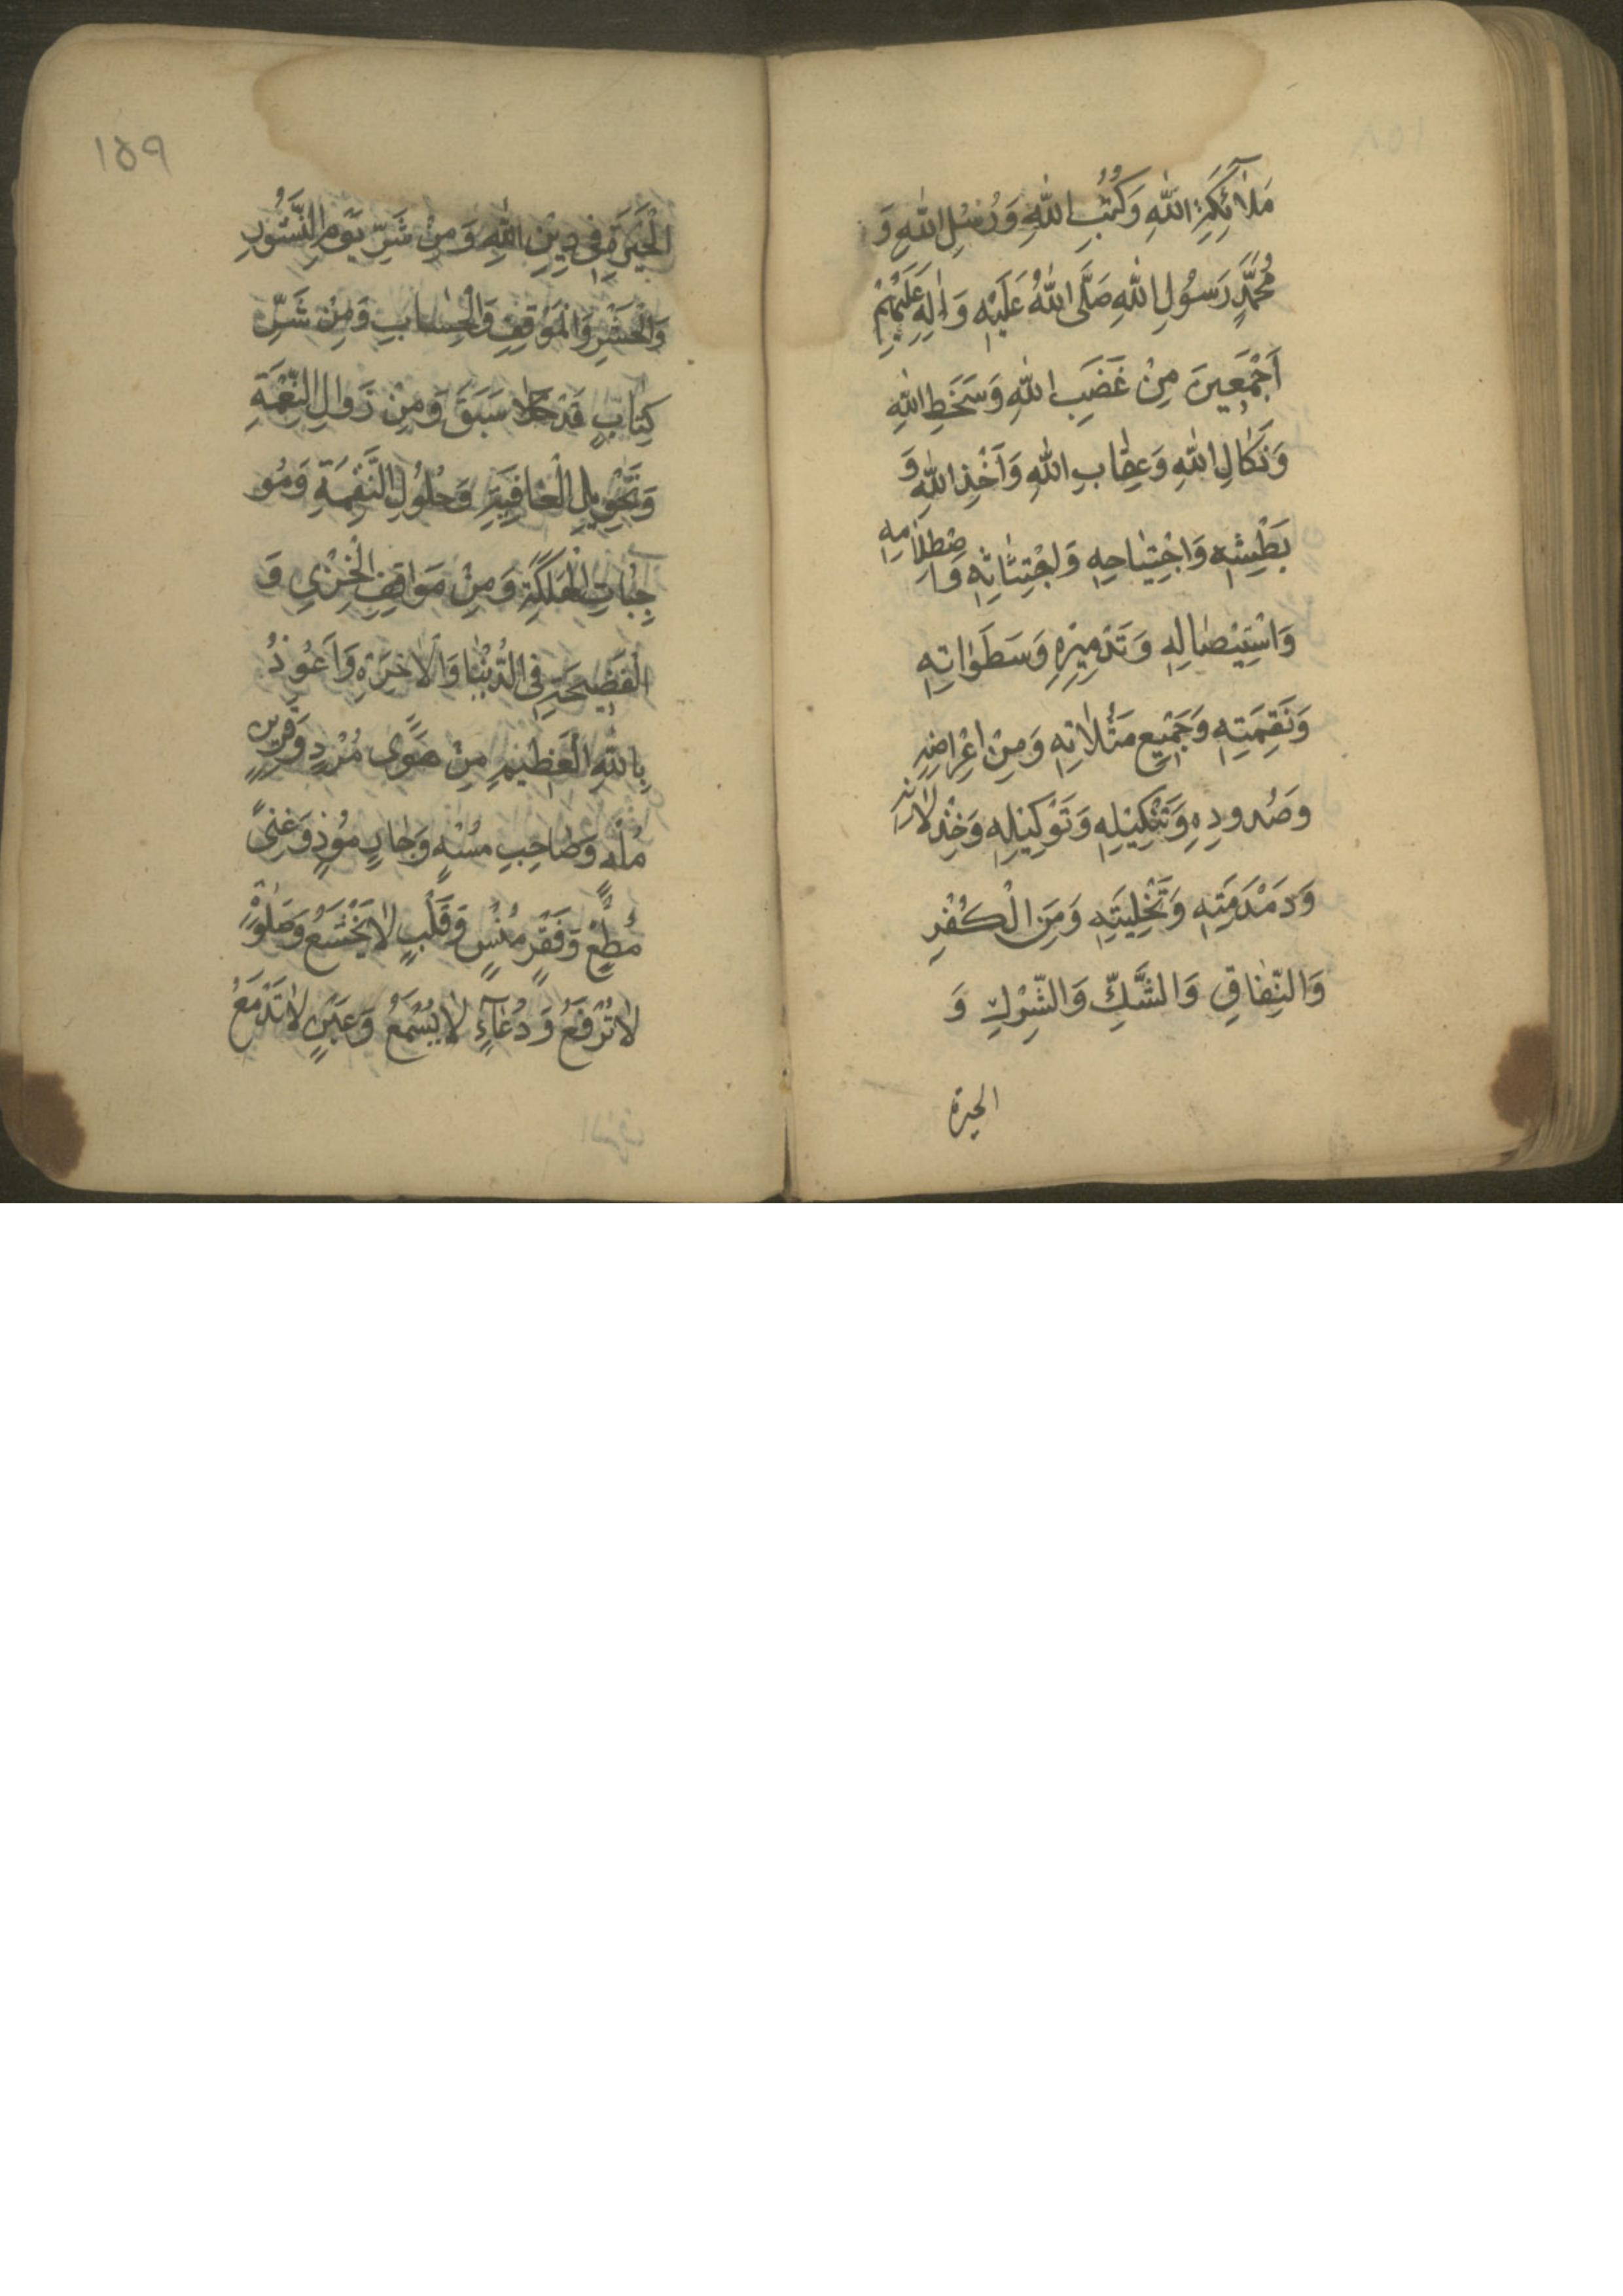 مَلاٰئِكَةِ اللّٰهِ وَكُتُبِ اللّٰهِ وَرُسُلِ اللّٰهِ وَ
مُحَمَّدٍ رَسُوْلِ اللّٰهِ صَلَّى اللّٰهُ عَلَيْهِ وَاٰلِهِ عَلَيْهِمْ
اَجْمَعِينَ مِنْ غَضَبِ اللّٰهِ وَسَخَطِ اللّٰهِ
وَنَكٰالِ اللّٰهِ وَعِقٰابِ اللّٰهِ وَاَخْذِ اللّٰهِ وَ
بَطْشِهِ وَاجْتِيٰاحِهِ وَاجْتِثٰاثِهِ وَاصْطِلاٰمِهِ
وَاسْتِيْصٰالِهِ وَتَدْمِيْرِهِ وَسَطَوٰاتِهِ
وَنَقِمَتِهِ وَجَمِيْعِ مَثُلاٰتِهِ وَمِنْ اِعْرٰاضِهِ
وَصُدودِهِ وَتَنْكِيْلِهِ وَتَوْكِيْلِهِ وَخِذْلاٰنِهِ
وَدَمْدَمَتِهِ وَتَخْلِيَتِهِ وَمِنَ الْكُفْرِ
وَالنِّفٰاقِ وَالشَّكِّ وَالشِّرْكِ وَ
الحيرة
١٥٩
الْحَيْرَةِ فِي دِيْنِ اللّٰهِ وَمِنْ شَرِّ يَوْمِ النُّشُوْرِ
وَالْحَشْرِ وَالْمَوْقِفِ وَالْحِسٰابِ وَمِنْ شَرِّ
كِتٰابٍ قَدْ سَبَقَ وَمِنْ زَوٰالِ النِّعْمَةِ
وَتَحْوِيلِ الْعٰافِيَةِ وَحُلُوْلِ النَّقِمَةِ وَمُو
جِبٰاتِ الْهَلَكَةِ وَمِنْ مَوٰاقِفِ الْخِزْيِ وَ
الْفَضِيحَةِ فِي الدُّنْيٰا وَالْاٰخِرَةِ وَاَعُوْذُ
بِاللّٰهِ الْعَظِيْمِ مِنْ هَوًى مُرْدٍ وَقَرِينٍ
مُلْهٍ وَصٰاحِبٍ مُسْهٍ وَجٰارٍ مُوْذٍ وَغِنًى
مُطْغٍ وَفَقْرٍ مُنْسٍ وَقَلْبٍ لاٰ يَخْشَعُ وَصَلٰوةٍ
لاٰ تُرْفَعُ وَدُعٰآءٍ لاٰ يُسْمَعُ وَعَيْنٍ لاٰ تَدْمَعُ